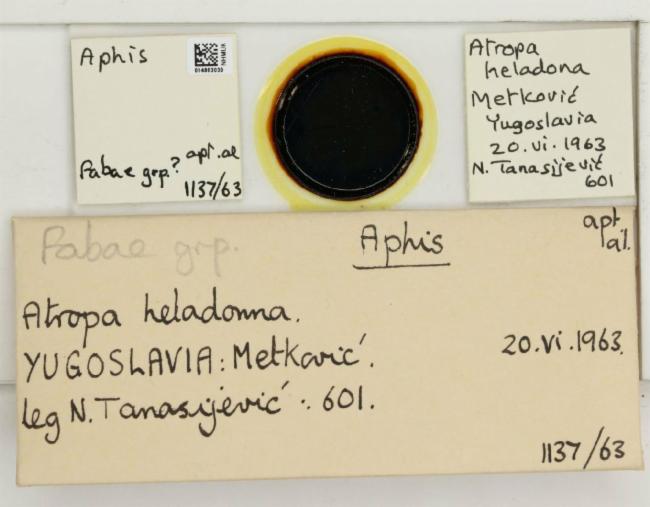 Aphis
NHMUK
014883030
Fabae grp? apt. al
1137/63
Atropa
heladona
Metković
Yugoslavia
20.vi.1963
N. Tanasijević
601
Fabae grp.
Aphis
apt
al.
Atropa heladonna.
YUGOSLAVIA: Metković.
20.vi.1963.
leg N. Tanasijević. 601.
1137/63